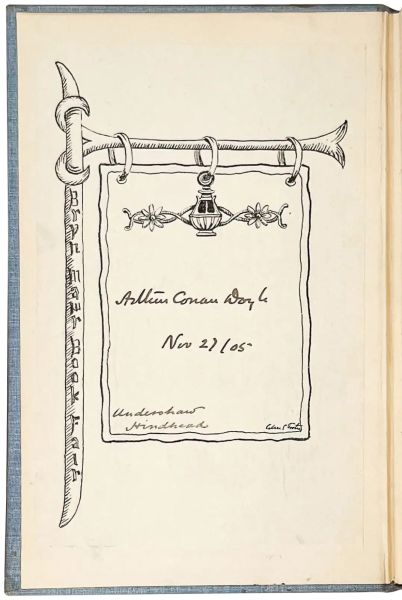 Bryn Mawr Book Fair
Arthur Conan Doyle
Nov 27/05
Undershaw
Hindhead